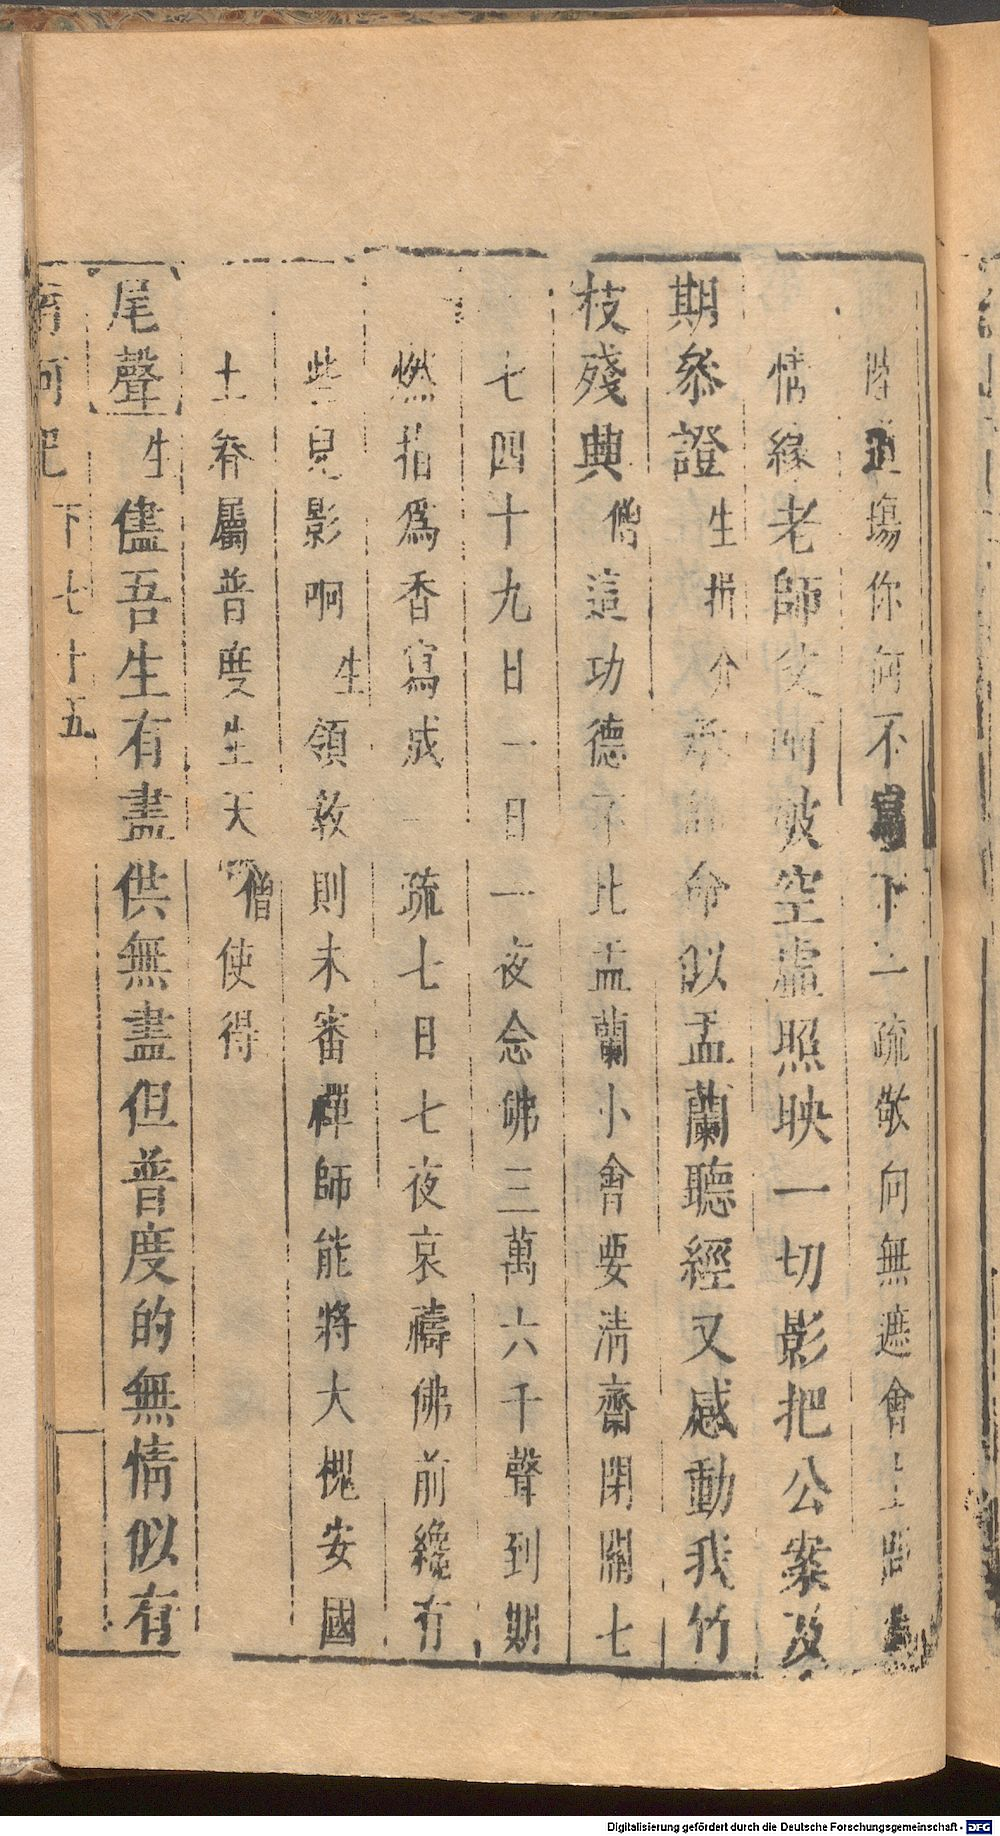 陸道場你何不寫下一疏敬向無遮會上
情緣老師父呵破空虛照映一切影把公案及
期叅證生揖介禀師命似盂蘭聽經又感動我竹
枝殘興僧這功德不比盂蘭小會要清齋閉關七
七四十九日一日一夜念佛三萬六千聲到期
燃指爲香寫成一疏七日七夜哀禱佛前纔有
些兒影啊生領敎則未審禪師能將大槐安國
土眷屬普度生天僧使得
尾聲生儘吾生有盡供無盡但普度的無情似有
南柯記下七十五
Digitalisierung gefördert durch die Deutsche Forschungsgemeinschaft - DFG